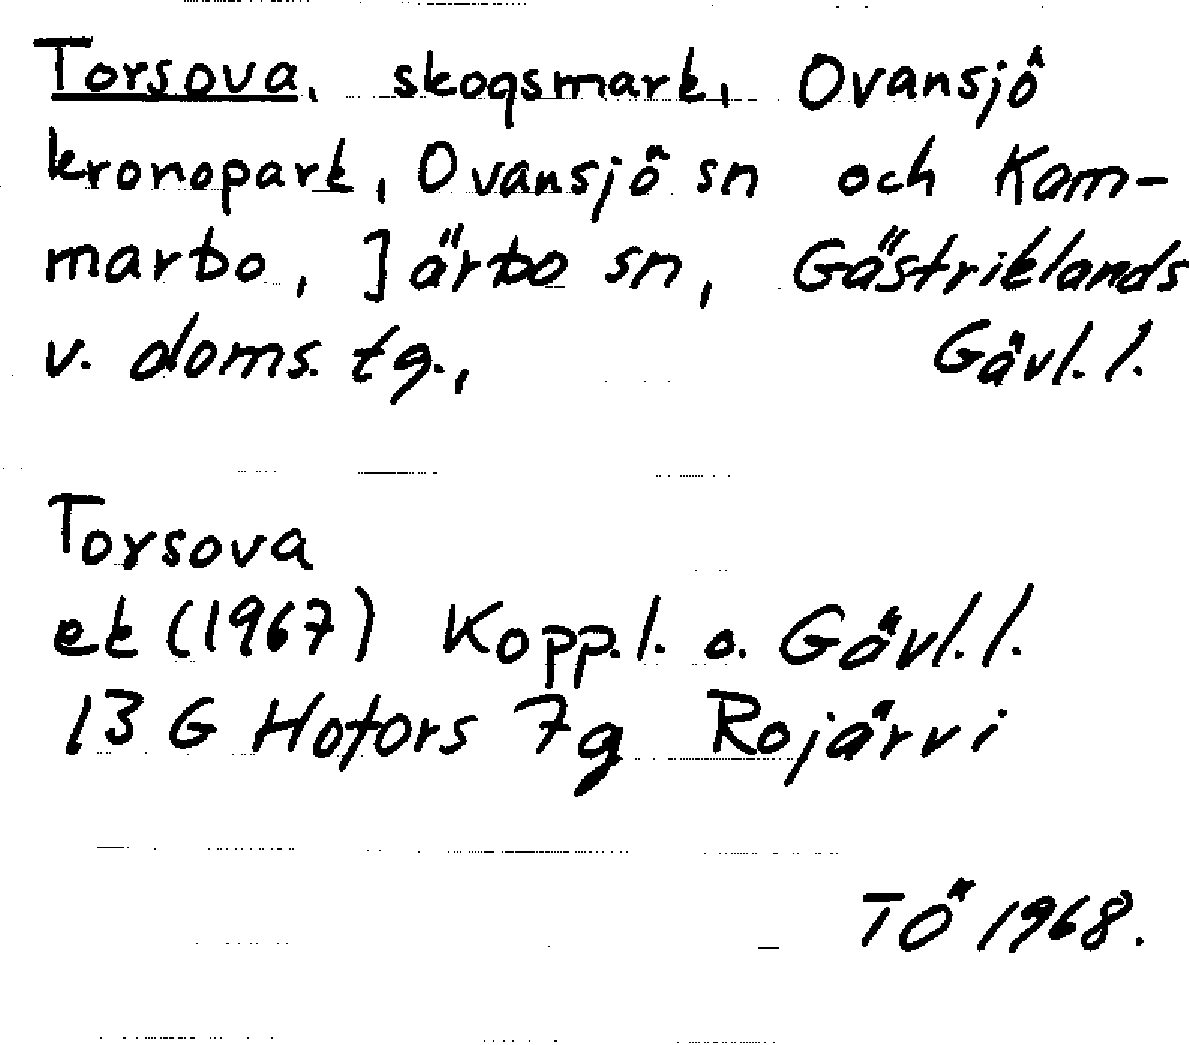 Torsova, skogsmark, Ovansjö
kronopark, Ovansjö sn och Kam-
marbo, Järbo sn, Gästriklands
v. doms. tg., Gävl. l.
Torsova
ek (1967) Kopp. l. o. Gävl. l.
13 G Hofors 7g Rojärvi
TÖ 1968.